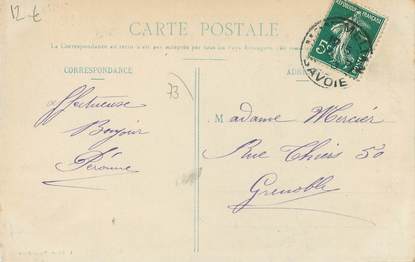 12 €
CARTE POSTALE
La Correspondance au recto n'est pas acceptée par tous les Pays étrangers
CORRESPONDANCE
73
RÉPUBLIQUE FRANÇAISE
5c
SAVOIE
affectueuse
Bonjour
Madame Mercier
Rue Thiers 50
Grenoble